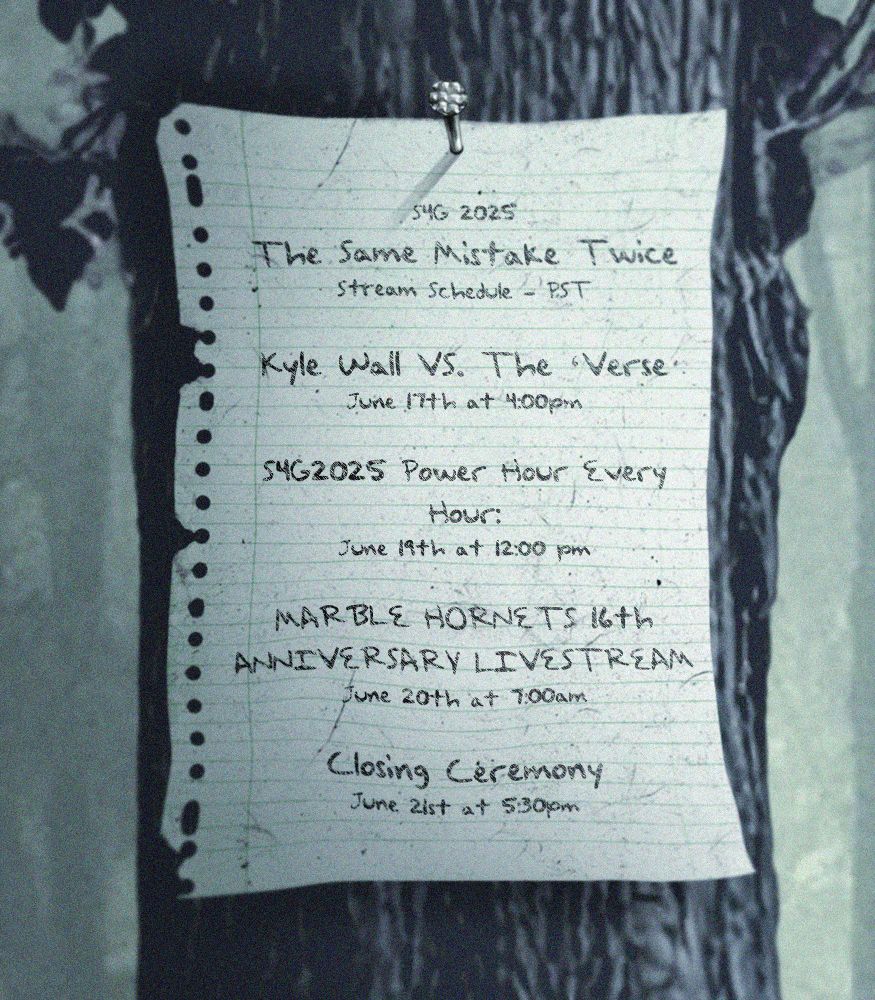 S4G 2025
The Same Mistake Twice
Stream Schedule - PST
Kyle Wall VS. The 'Verse'
June 17th at 4:00pm
S4G2025 Power Hour Every
Hour:
June 19th at 12:00 pm
MARBLE HORNETS 16th
ANNIVERSARY LIVESTREAM
June 20th at 7:00am
Closing Ceremony
June 21st at 5:30pm